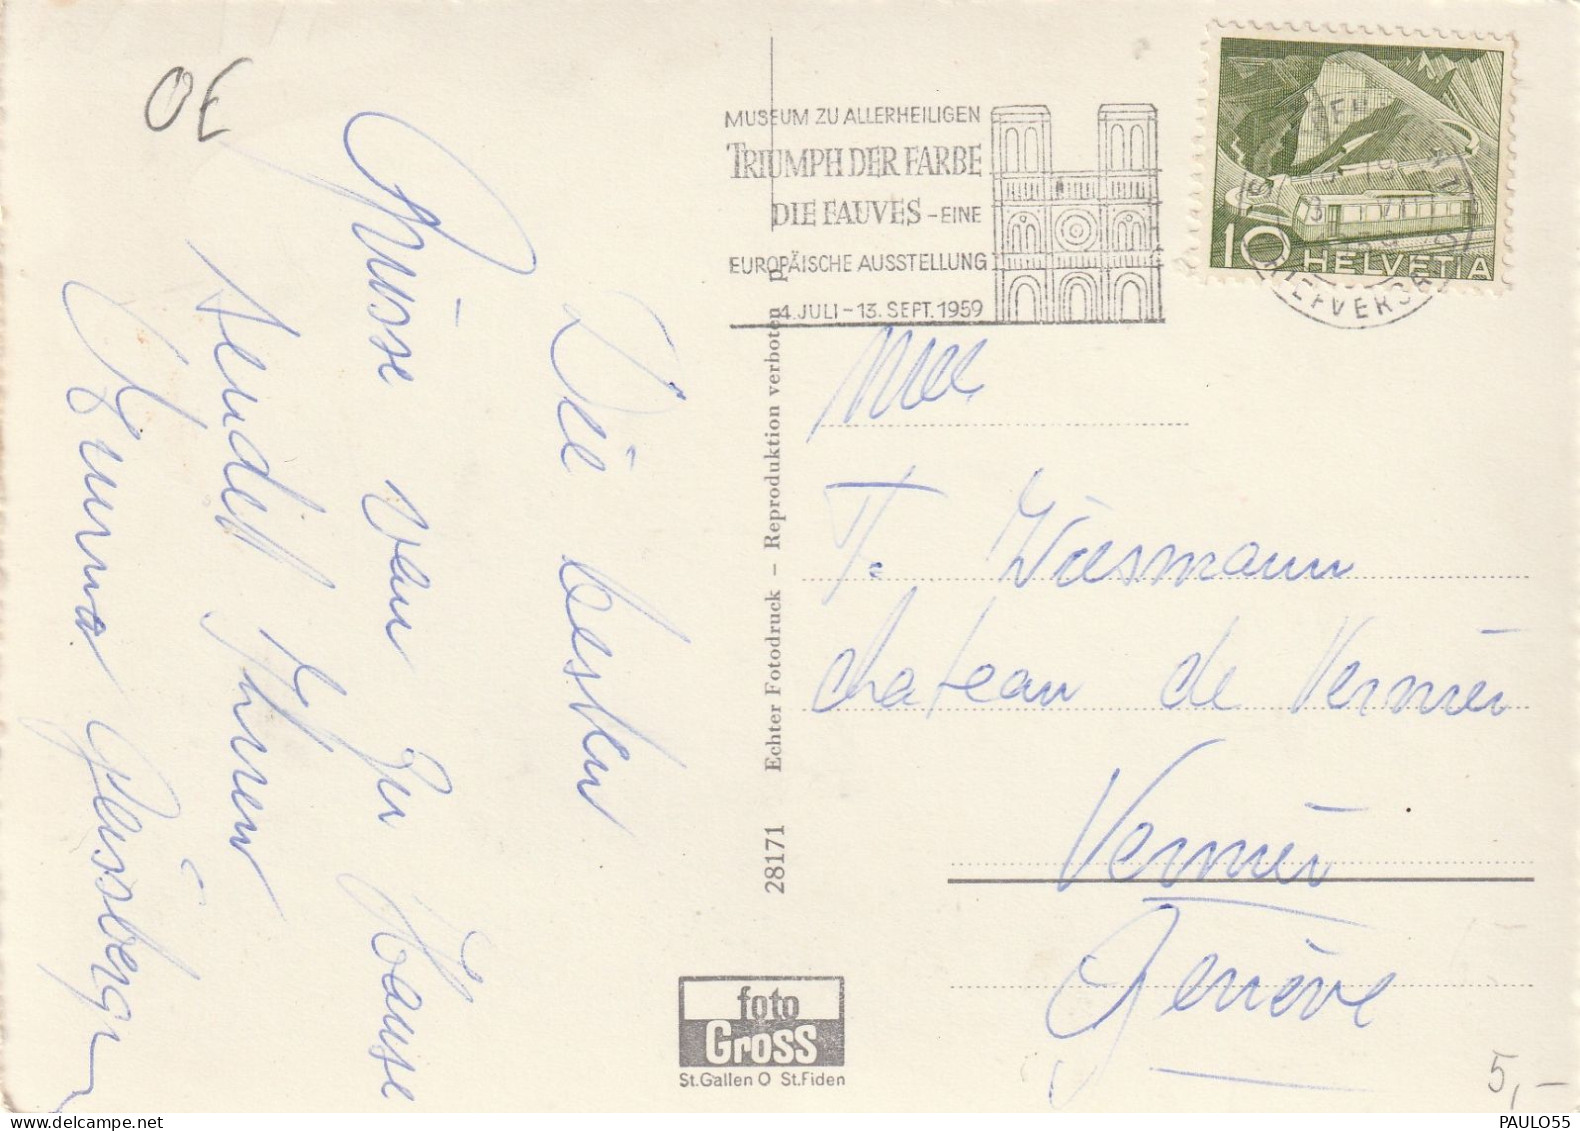 OE
MUSEUM ZU ALLERHEILIGEN
TRIUMPH DER FARBE
DIE FAUVES – EINE
EUROPÄISCHE AUSSTELLUNG
4. JULI – 13. SEPT. 1959
10 HELVETIA
BRIEFVERSAND
Die besten
Grüsse von zu Hause
sendet Ihnen
28171 Echter Fotodruck – Reproduktion verboten p
Mlle
T. Wiesmann
chateau de Vernier
Vernier
Genève
foto
Gross
St.Gallen O St.Fiden
5,–
PAULO55